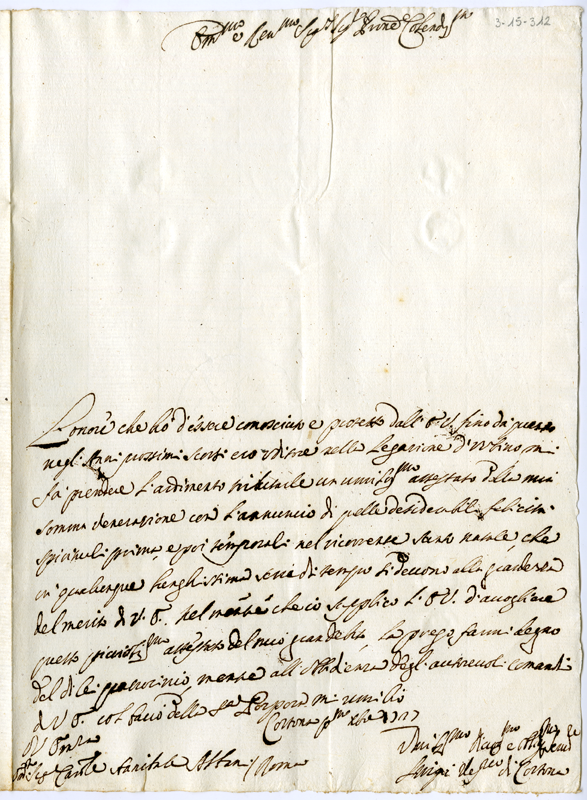 Em.mo e Reu.mo Sig.r Sig.r Prone Colend.mo
3-15-312
L'onore che hò d'essere conosciuto e protetto dall'E.V. sino da quando
negli Anni prossimi scorsi ero Uditore nella Legazione d'Urbino mi
fà prendere l'ardimento tributarle un umilis.mo attestato della mia
somma venerazione con l'annuncio di quelle desiderabili felicità
spirituali prima, e poi temporali nel ricorrente Santo Natale, che
in qualunque lunghissima serie di tempo si devono alla grandezza
del merito di V.E. Nel mentre che io supplico l'E.V. d'accogliere
questo attestato del mio gran debito, la prego farmi degno
del di lei patrocinio, mentre all'obbedienza degli autorevoli comandi
di V.E. col bacio della Sa. Porpora mi umilio
Di V. Em.za Cortona p.mo Xbre 1727
Em. Sig. Card.le Annibale Albani / Roma
Um.mo Deu.mo e Obl.mo
Luigi Ves.co di Cortona